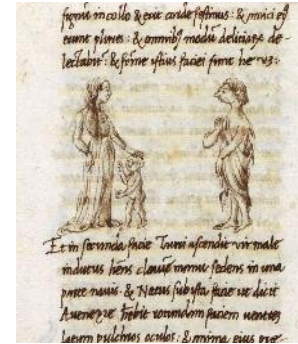 signū in collo & erit corde festinus : & amici eiꝰ
erunt plures : & omnibꝫ modū deliciarꝫ de-
lectabit : & forme istius faciei sunt he vꝫ :
Et in secunda facie Tauri ascendit vir male
indutus hēns clauē manu sedens in una
parte nauis . & Natus sub ista facie ut dicit
hēbit rotundam faciem
latum pulchros oculos : & anima eius